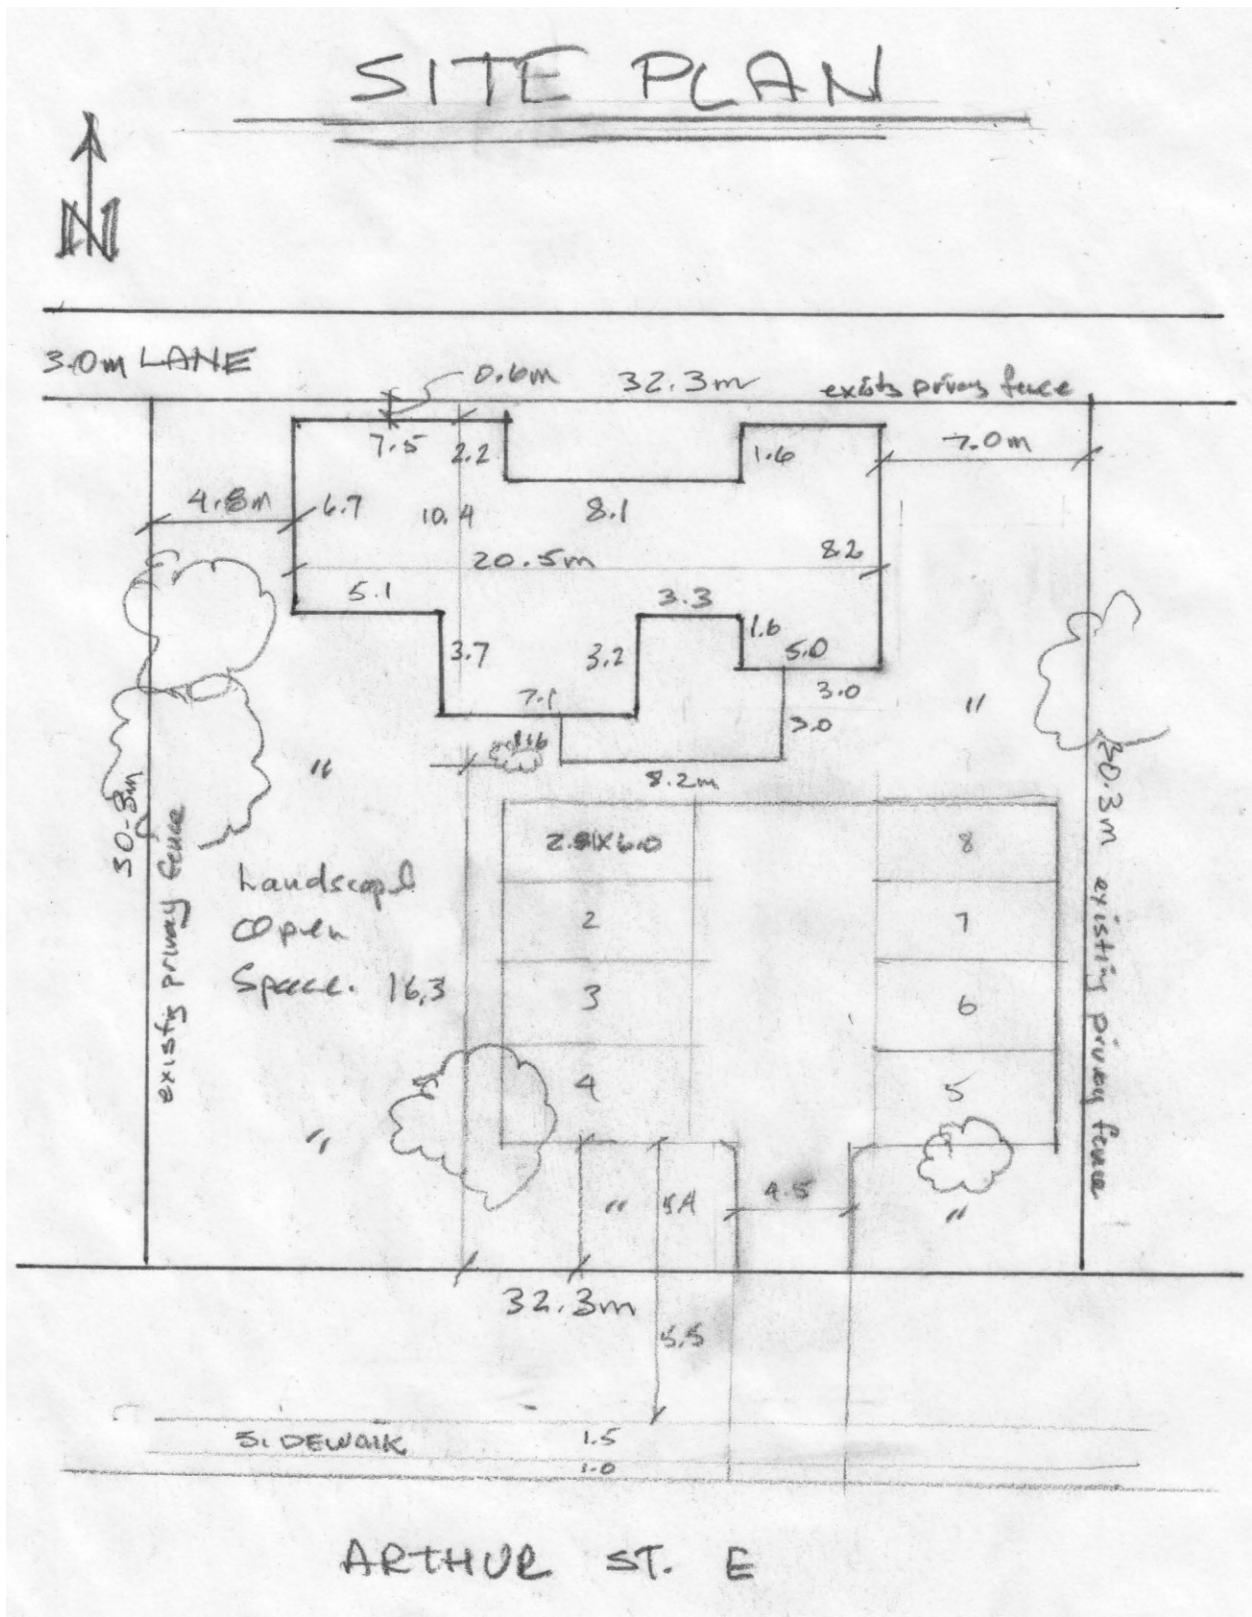 SITE PLAN
N
3.0m LANE
0.6m
32.3m
existg privay fence
7.5
2.2
1.6
7.0m
4.8m
6.7
10.4
8.1
20.5m
8.2
5.1
3.3
3.7
3.2
1.6
5.0
7.1
3.0
3.0
"
"
8.2m
30.3m
30.3m
existing privay fence
existig privay fence
2.81X6.0
8
Landscapl
Open
Space.
16.3
2
7
3
6
4
5
"
"
"
5.4
4.5
32.3m
5.5
SIDEWALK
1.5
1.0
ARTHUR ST. E